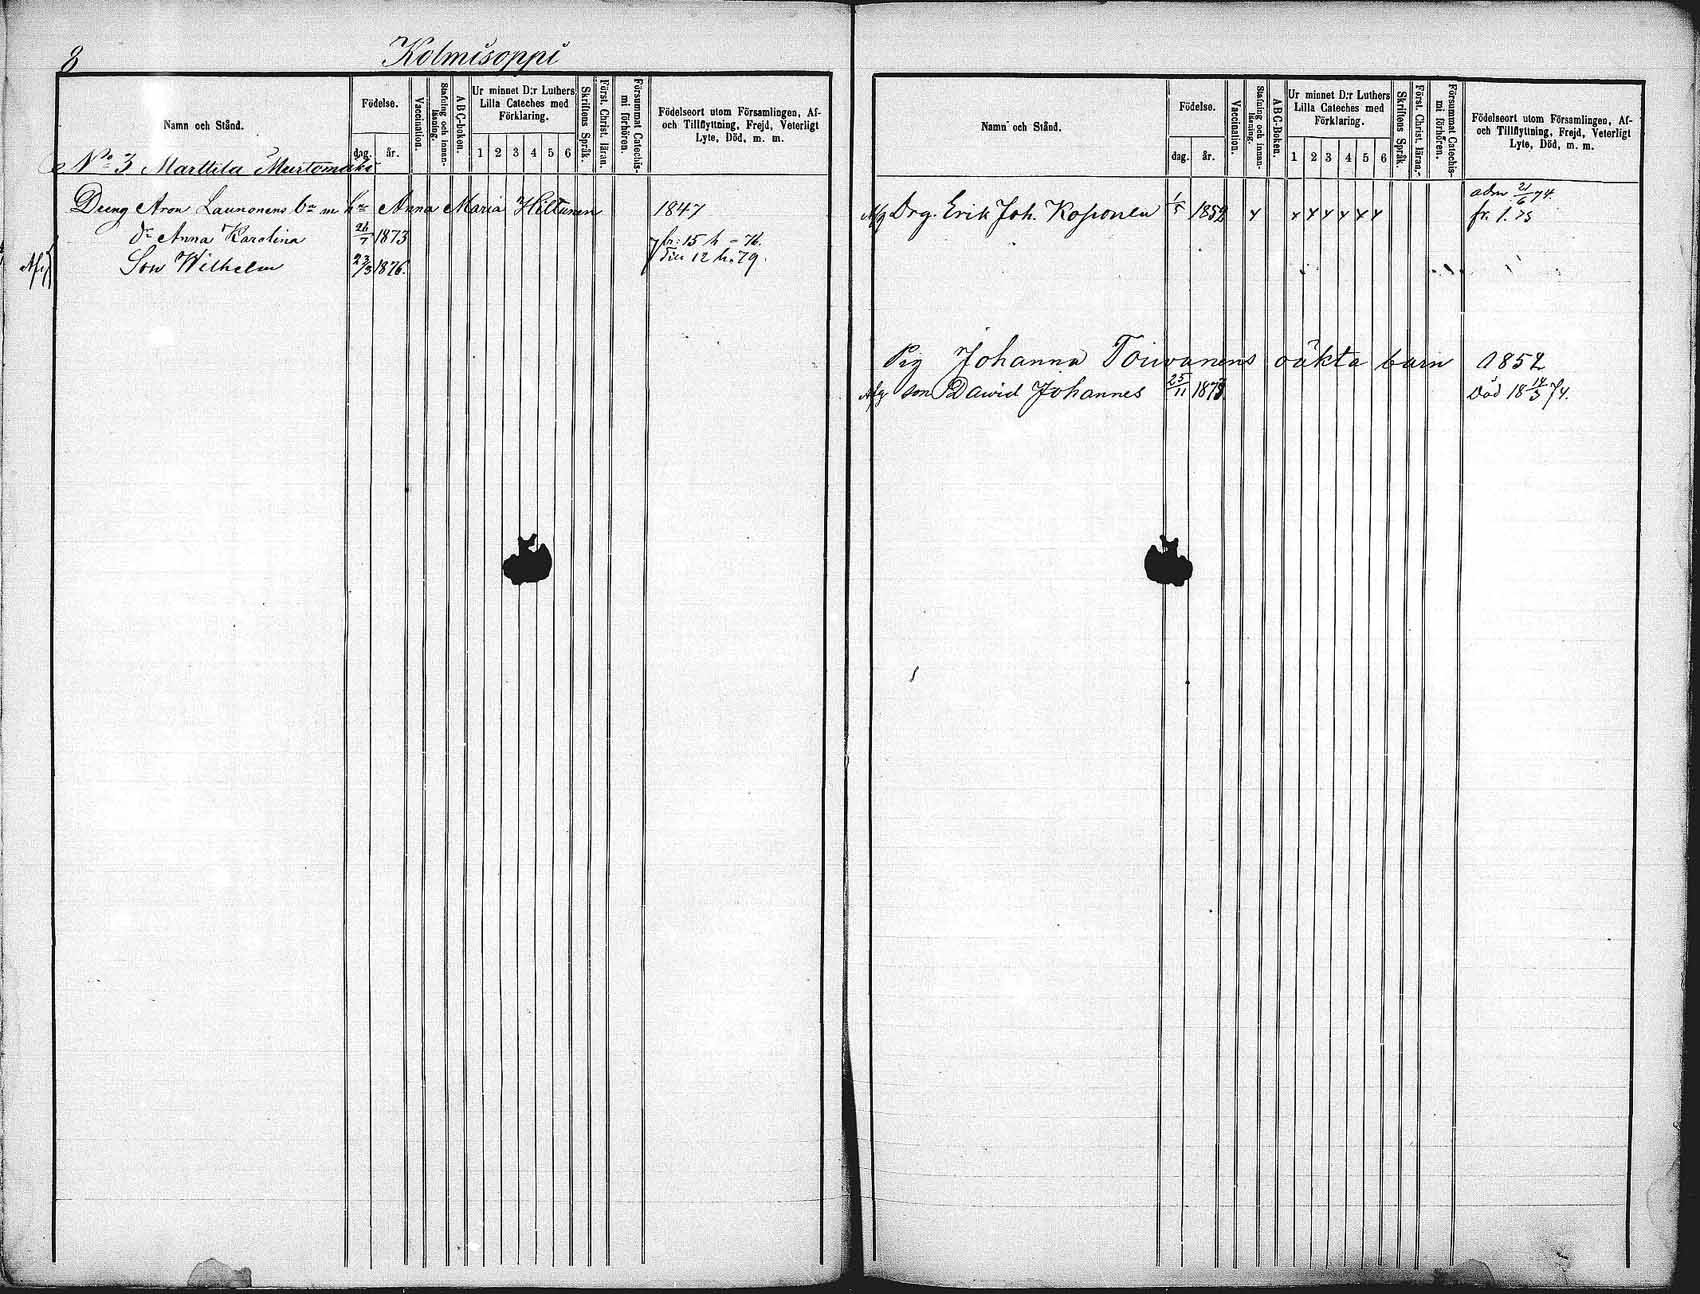 8
Kolmisoppi
Namn och Stånd.
Födelse.
dag.
år.
Vaccination.
Stafning och innan-läsning.
ABC-boken.
Ur minnet D:r Luthers Lilla Cateches med Förklaring.
1 2 3 4 5 6
Skriftens Språk.
Först. Christ. läran.
Försummat Catechismi förhören.
Födelseort utom Församlingen, Af- och Tillflyttning, Frejd, Veterligt Lyte, Död, m. m.
No 3 Marttila Murtomäki
Aron Launonens bn m hu Anna Maria Hiltunen 1847
dr Anna Karolina 26/7 1873
fr: 15 h - 76.
Son Wilhelm 23/3 1876.
Till 12 h. 79.
Namn och Stånd.
Födelse.
dag.
år.
Vaccination.
Stafning och innan-läsning.
ABC-Boken.
Ur minnet D:r Luthers Lilla Cateches med Förklaring.
1 2 3 4 5 6
Skriftens Språk.
Först. Christ. läran.
Försummat Catechismi förhören.
Födelseort utom Församlingen, Af- och Tillflyttning, Frejd, Veterligt Lyte, Död, m. m.
adm 21/6 74.
Afg Drg. Erik Joh. Koponen 1/5 1852 x x x x x x x fr. 1. 75
Pig Johanna Toiwanens oäkta barn 1852
Afg son Dawid Johannes 25/11 1873 Död 18 14/5 74.